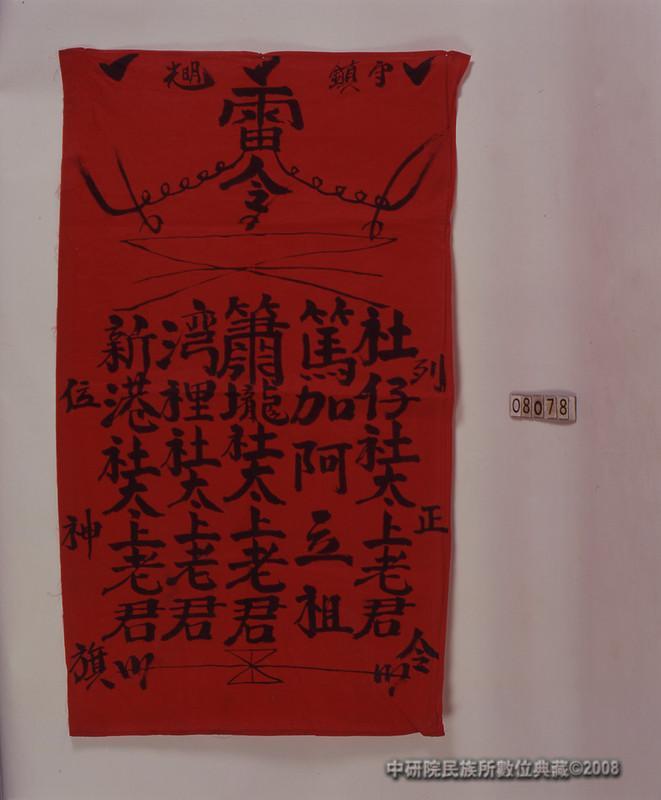 鎮守
光明
雷令
列正令
社仔社太上老君
篤加阿立祖
簫壠社太上老君
湾裡社太上老君
新港社太上老君
位神旗
08078
中研院民族所數位典藏©2008